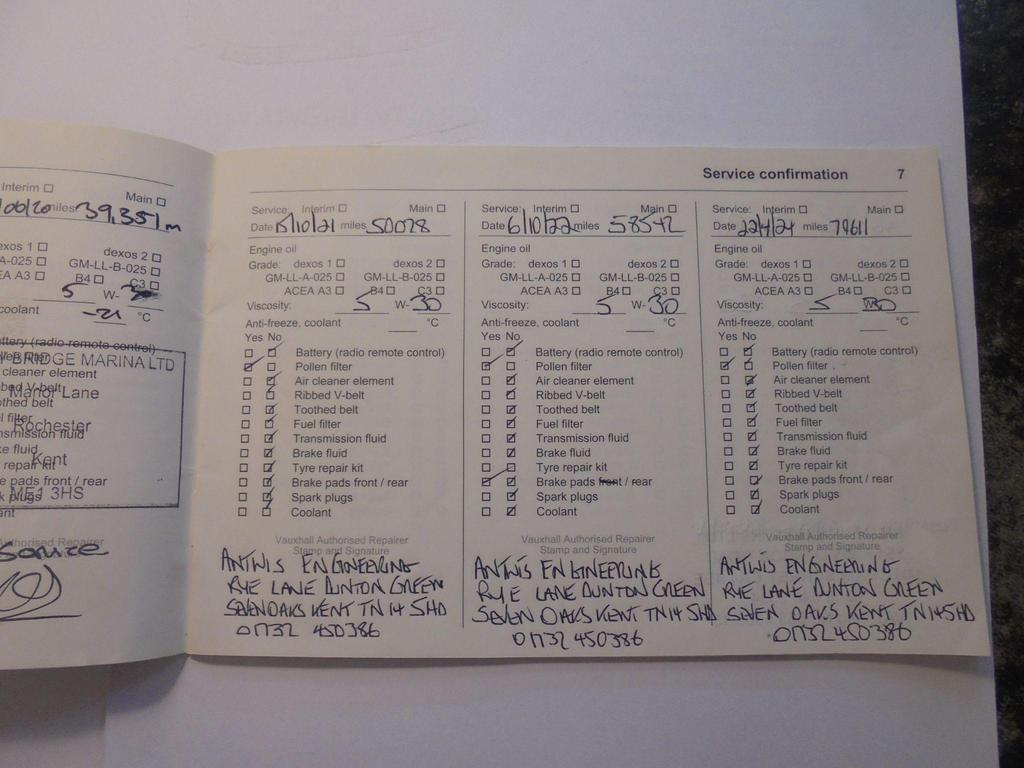 Interim ☐
Main ☐
/06/20 miles 39,351 m
exos 1 ☐ dexos 2 ☐
-LL-A-025 ☐ GM-LL-B-025 ☐
EA A3 ☐ B4 ☐ C3 ☐
5 W-
coolant -21 °C
ttery (radio remote control)
BRIDGE MARINA LTD
cleaner element
Manor Lane
Rochester
nsmission fluid
ke fluid
Kent
repair kit
e pads front / rear
ME1 3HS
Authorised Repairer
Service
Service confirmation 7
Service: Interim ☐ Main ☐
Date /10/21 miles 50078
Engine oil
Grade: dexos 1 ☐ dexos 2 ☐
GM-LL-A-025 ☐ GM-LL-B-025 ☐
ACEA A3 ☐ B4 ☐ C3 ☐
Viscosity: 5 W-30
Anti-freeze, coolant °C
Yes No
Battery (radio remote control)
Pollen filter
Air cleaner element
Ribbed V-belt
Toothed belt
Fuel filter
Transmission fluid
Brake fluid
Tyre repair kit
Brake pads front / rear
Spark plugs
Coolant
Vauxhall Authorised Repairer
Stamp and Signature
ANTWIS ENGINEERING
RYE LANE DUNTON GREEN
SEVENOAKS KENT TN14 5HD
01732 450386
Service: Interim ☐ Main ☐
Date 6/10/22 miles 58542
Engine oil
Grade: dexos 1 ☐ dexos 2 ☐
GM-LL-A-025 ☐ GM-LL-B-025 ☐
ACEA A3 ☐ B4 ☐ C3 ☐
Viscosity: 5 W-30
Anti-freeze, coolant °C
Yes No
Battery (radio remote control)
Pollen filter
Air cleaner element
Ribbed V-belt
Toothed belt
Fuel filter
Transmission fluid
Brake fluid
Tyre repair kit
Brake pads front / rear
Spark plugs
Coolant
Vauxhall Authorised Repairer
Stamp and Signature
ANTWIS ENGINEERING
RYE LANE DUNTON GREEN
SEVEN OAKS KENT TN14 5HD
01732 450386
Service: Interim ☐ Main ☐
Date 22/4/24 miles 79611
Engine oil
Grade: dexos 1 ☐ dexos 2 ☐
GM-LL-A-025 ☐ GM-LL-B-025 ☐
ACEA A3 ☐ B4 ☐ C3 ☐
Viscosity: 5 W-30
Anti-freeze, coolant °C
Yes No
Battery (radio remote control)
Pollen filter
Air cleaner element
Ribbed V-belt
Toothed belt
Fuel filter
Transmission fluid
Brake fluid
Tyre repair kit
Brake pads front / rear
Spark plugs
Coolant
Vauxhall Authorised Repairer
Stamp and Signature
ANTWIS ENGINEERING
RYE LANE DUNTON GREEN
SEVEN OAKS KENT TN14 5HD
01732 450386